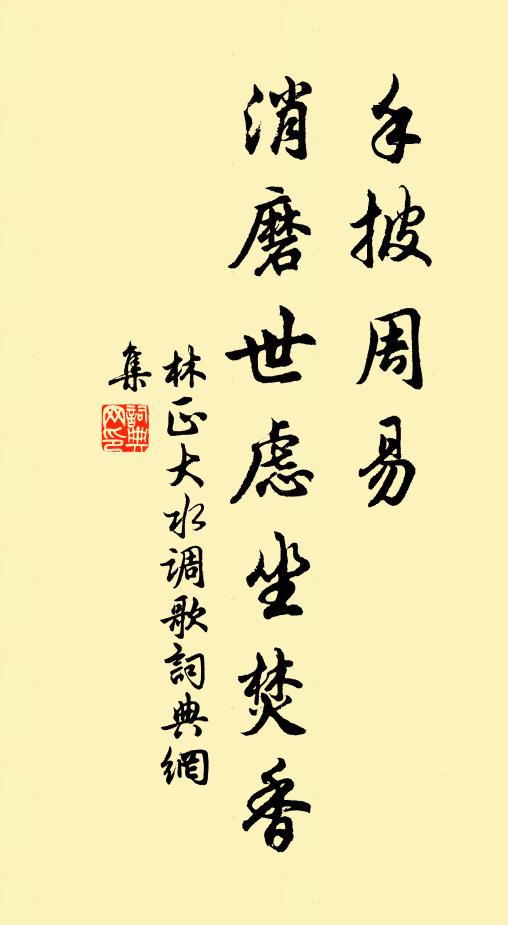 手披周易
消磨世虑坐焚香
林正大水调歌詞典網
集
詞典網印